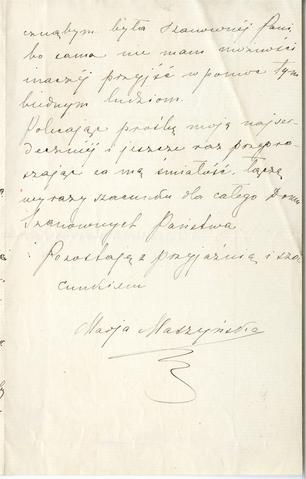 cznąbym była Szanownéj Pani,
bo sama nie mam możności
inaczéj przyjść w pomoc tym
biednym ludziom.
Polecając prośbę moją najser-
deczniéj i jeszcze raz przepra-
szając za mą śmiałość, łączę
wyrazy szacunku dla całego Domu
Szanownych Państwa
Pozostaję z przyjaźnią i sza-
cunkiem
Marja Maszyńska